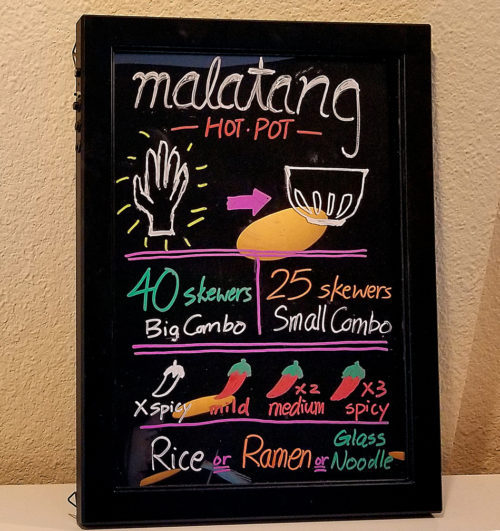 malatang
— HOT·POT —
40 skewers
Big Combo
25 skewers
Small Combo
x2
x3
X spicy
mild
medium
spicy
Rice or Ramen or Glass Noodle